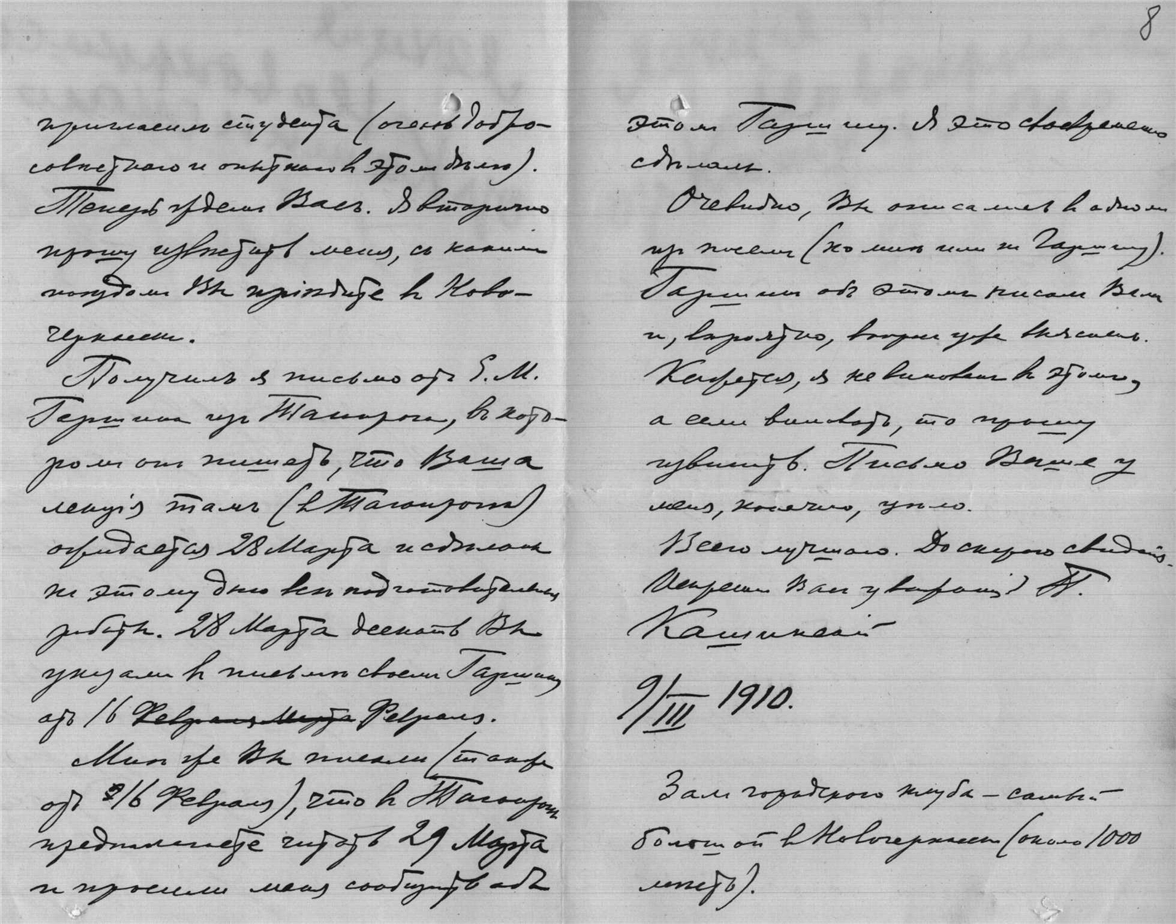 пригласилъ студента (очень добро-
совѣстнаго и опытнаго въ этомъ дѣлѣ).
Теперь ждемъ Васъ. Я вторично
прошу извѣстить меня, съ какимъ
поѣздомъ Вы пріѣдите въ Ново-
черкасскъ.
Получилъ я письмо отъ Е. М.
Гаршина изъ Таганрога, въ кото-
ромъ онъ пишетъ, что Ваша
лекція тамъ (въ Таганрогѣ)
ожидается 28 Марта и сдѣланы
къ этому дню всѣ подготовительныя
работы. 28 Марта дескать Вы
указали въ письмѣ своемъ Гаршину
отъ 16 Февраля Марта Февраля.
Мнѣ же Вы писали (также
отъ 16 Февраля), что въ Таганрогѣ
предполагаете читать 29 Марта
и просили меня сообщить объ
8
этомъ Гаршину. Я это своевременно
сдѣлалъ.
Очевидно, Вы описались въ одномъ
изъ писемъ (ко мнѣ или къ Гаршину).
Гаршинъ объ этомъ писалъ Вамъ
и, вѣроятно, вопросъ уже выясненъ.
Кажется, я не виноватъ въ этомъ,
а если виноватъ, то прошу
извинить. Письмо Ваше у
меня, конечно, цѣло.
Всего лучшаго. До скораго свиданія.
Искренно Васъ уважающій П.
Кашинскій
9/III 1910.
Залъ городского клуба – самый
большой въ Новочеркасскѣ (около 1000
мѣстъ).